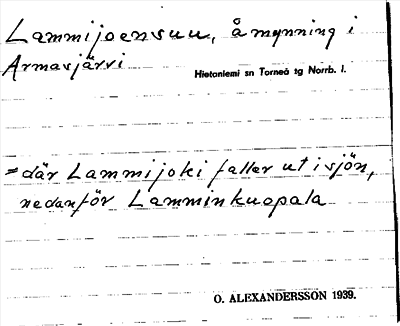 Lammijoensuu, åmynning i
Armasjärvi
Hietaniemi sn Torneå tg Norrb. l.
= där Lammijoki faller ut i sjön,
nedanför Lamminkuopala
O. ALEXANDERSSON 1939.